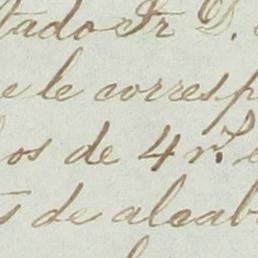 tado Sr D.
e le corresp
os de 4 r.s e
s de alcab